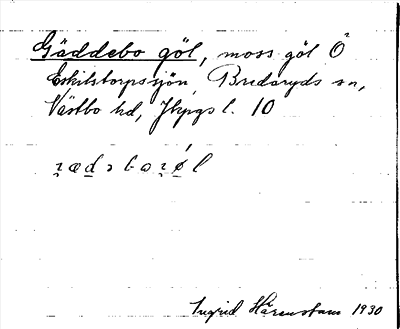 Gäddebo göl, moss göl Ö
Eskilstorpssjön, Bredaryds sn,
Västbo hd, Jkpgs l. 10
Ingrid Härenstam 1930